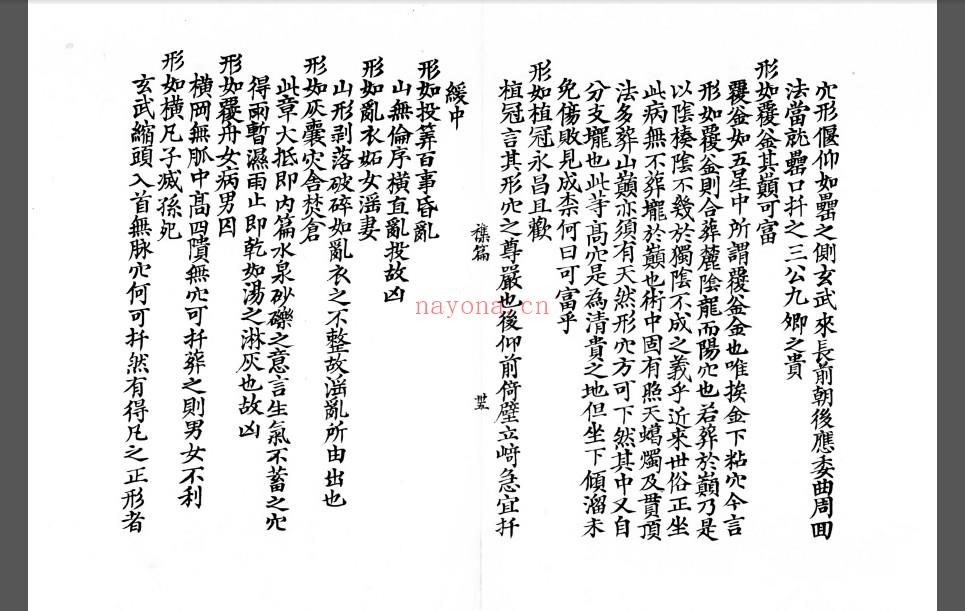 穴形偃仰如罍之側玄武來長前朝後應委曲周囬
法當就罍口扦之三公九卿之貴
形如覆釡其巔可富
覆釡如五星中所謂覆釡金也唯挨金下粘穴今言
形如覆釡則合葬麓陰龍而陽穴也若葬於巔乃是
以陰棲陰不幾於獨陰不成之義乎近來世俗正坐
此病無不葬壠於巔也術中固有照天蠟燭及貫頂
法多葬山巔亦須有天然形穴方可下然其中又自
分支壠也此等高穴是為清貴之地但坐下傾溜未
免傷敗見成柰何曰可富乎
形如植冠永昌且歡
植冠言其形穴之尊嚴也後仰前倚壁立﨑急宜扦
襍篇
卅五
緩中
形如投筭百事昏亂
山無倫序橫直亂投故凶
形如亂衣妬女滛妻
山形剥落破碎如亂衣之不整故滛亂所由出也
形如灰囊灾舎焚倉
此章大抵即內篇水泉砂礫之意言生氣不蓄之穴
得雨暫濕雨止即乾如湯之淋灰也故凶
形如覆舟女病男囚
橫岡無脈中高四隤無穴可扦葬之則男女不利
形如橫几子滅孫死
玄武縮頭入首無脉穴何可扦然有得几之正形者
nayona.cn